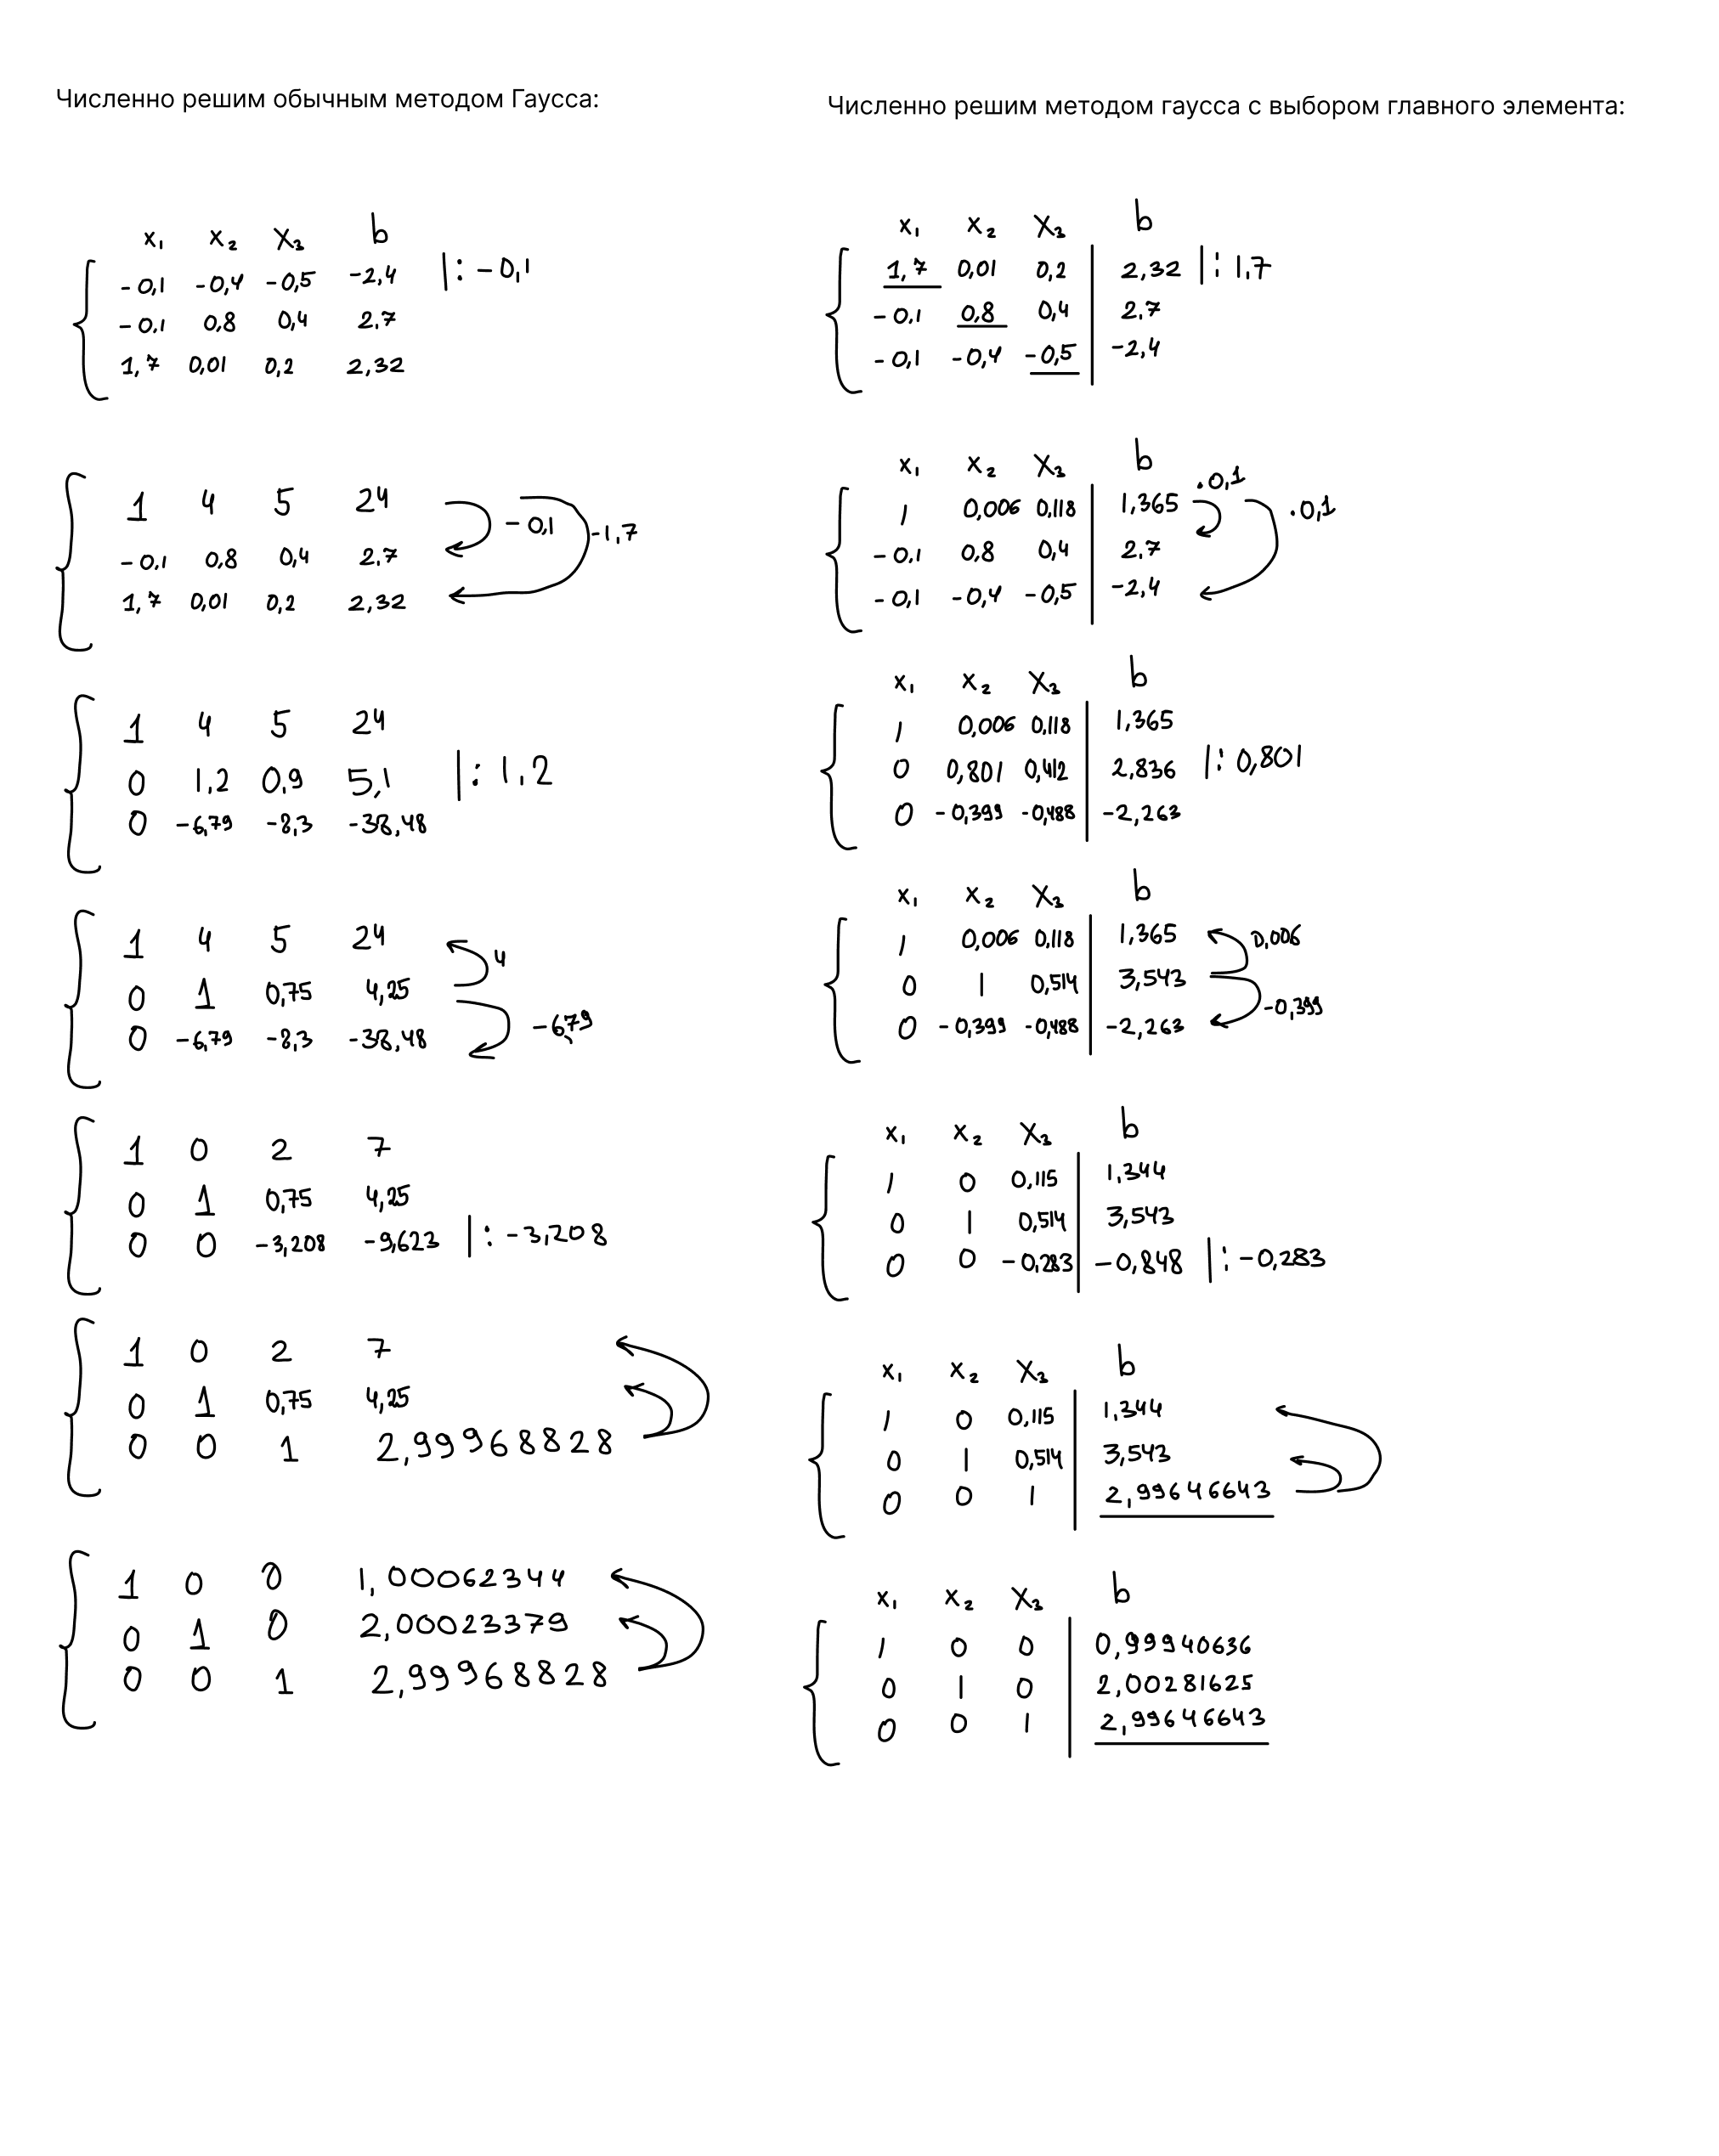 Численно решим обычным методом Гаусса:
x₁ x₂ x₃ b
-0,1 -0,4 -0,5 -2,4 |: -0,1
-0,1 0,8 0,4 2,7
1,7 0,01 0,2 2,32
1 4 5 24 -0,1 -1,7
-0,1 0,8 0,4 2,7
1,7 0,01 0,2 2,32
1 4 5 24
0 1,2 0,9 5,1 |: 1,2
0 -6,79 -8,3 -38,48
1 4 5 24 4
0 1 0,75 4,25
0 -6,79 -8,3 -38,48 -6,79
1 0 2 7
0 1 0,75 4,25
0 0 -3,208 -9,623 |: -3,208
1 0 2 7
0 1 0,75 4,25
0 0 1 2,99968828
1 0 0 1,00062344
0 1 0 2,00023379
0 0 1 2,99968828
Численно решим методом гаусса с выбором главного элемента:
x₁ x₂ x₃ b
1,7 0,01 0,2 2,32 |: 1,7
-0,1 0,8 0,4 2,7
-0,1 -0,4 -0,5 -2,4
x₁ x₂ x₃ b
1 0,006 0,118 1,365 ·0,1 ·0,1
-0,1 0,8 0,4 2,7
-0,1 -0,4 -0,5 -2,4
x₁ x₂ x₃ b
1 0,006 0,118 1,365
0 0,801 0,412 2,836 |: 0,801
0 -0,399 -0,488 -2,263
x₁ x₂ x₃ b
1 0,006 0,118 1,365 0,006
0 1 0,514 3,543
0 -0,399 -0,488 -2,263 -0,399
x₁ x₂ x₃ b
1 0 0,115 1,344
0 1 0,514 3,543
0 0 -0,283 -0,848 |: -0,283
x₁ x₂ x₃ b
1 0 0,115 1,344
0 1 0,514 3,543
0 0 1 2,99646643
x₁ x₂ x₃ b
1 0 0 0,99940636
0 1 0 2,00281625
0 0 1 2,99646643